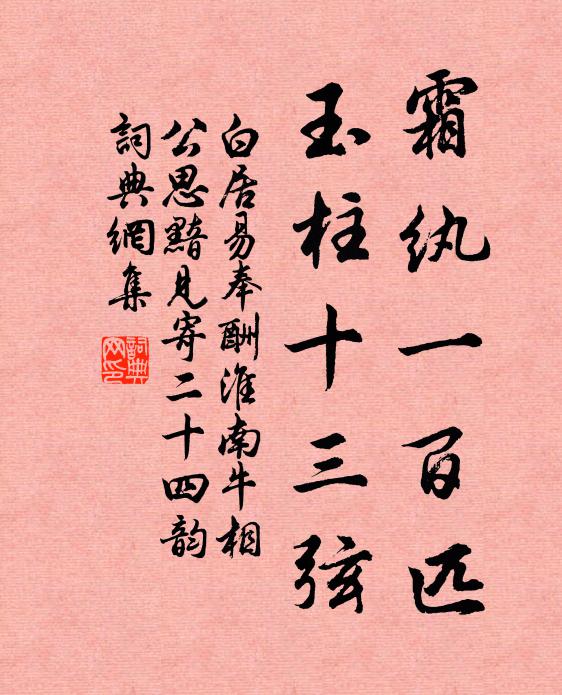 霜纨一百匹
玉柱十三弦
白居易奉酬淮南牛相
公思黯見寄二十四韵
詞典網集
詞典
网印